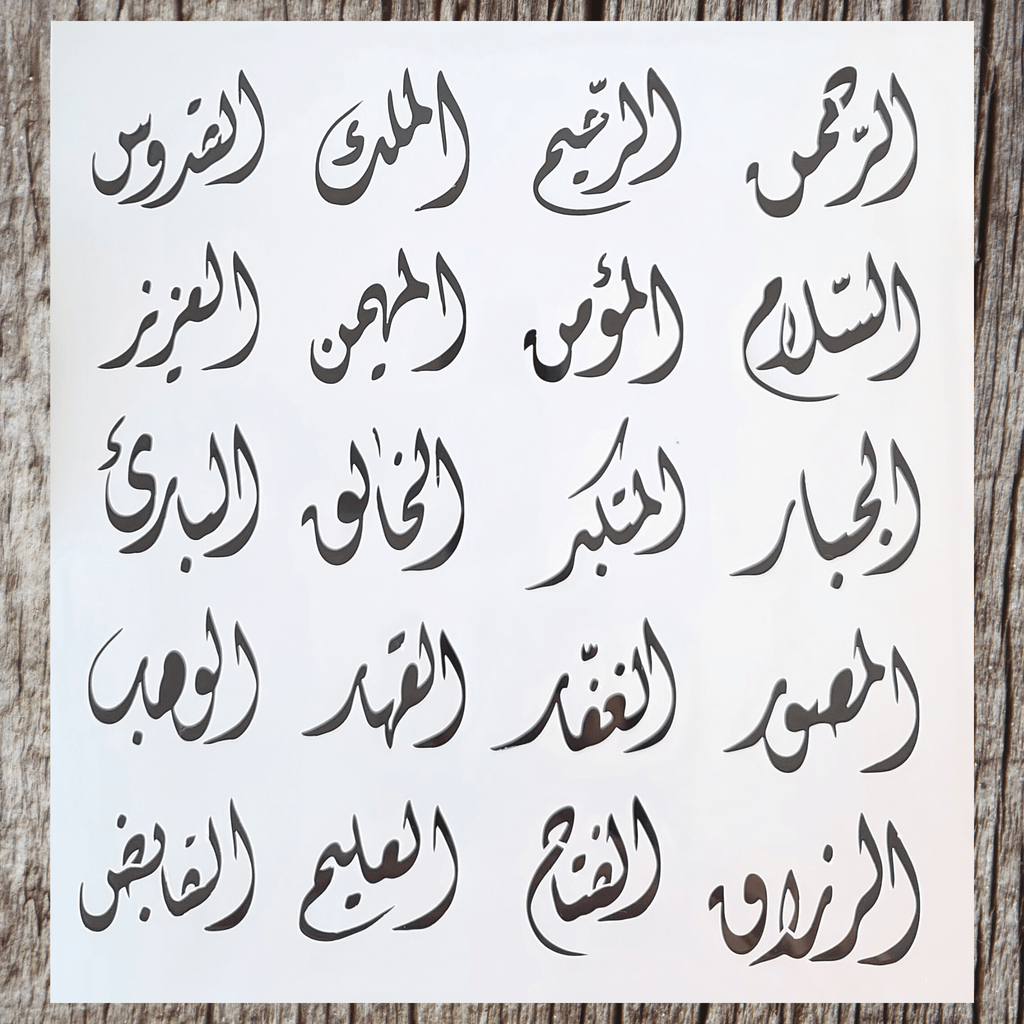 الرحمن الرّحيم الملك القدوس
السّلام المؤمن المهيمن العزيز
الجبار المتكبر الخالق البارئ
المصور الغفّار القهار الوهاب
الرزاق الفتاح العليم القابض